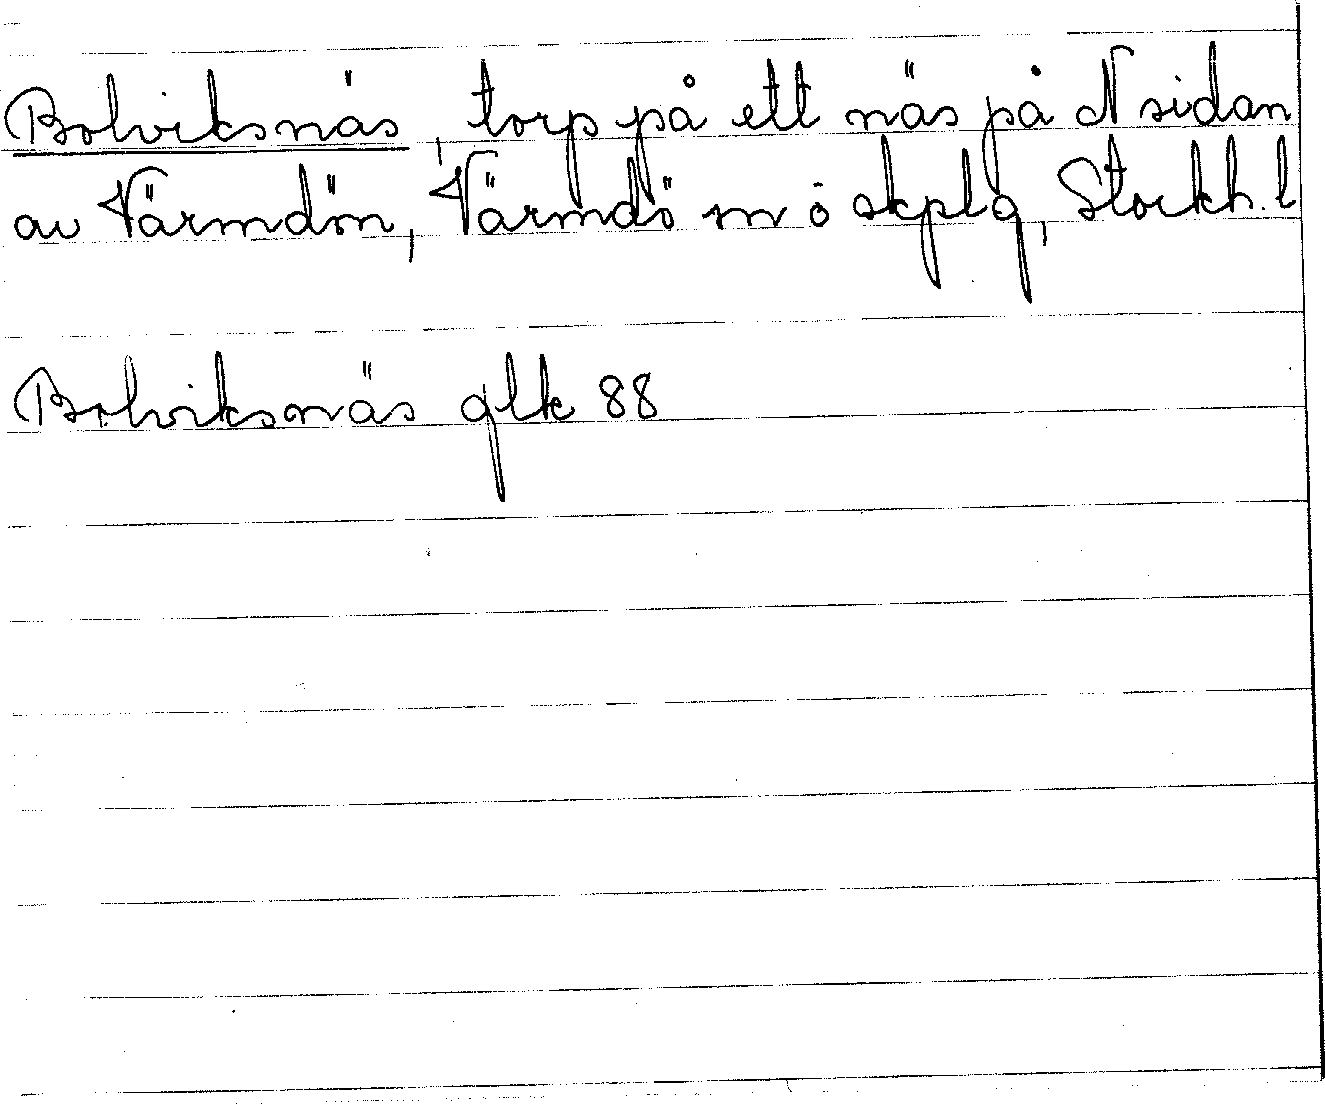 Bolviksnäs, torp på ett näs på N sidan
av Värmdön, Värmdö sn o skplg, Stockh. l
Bolviksnäs glk 88